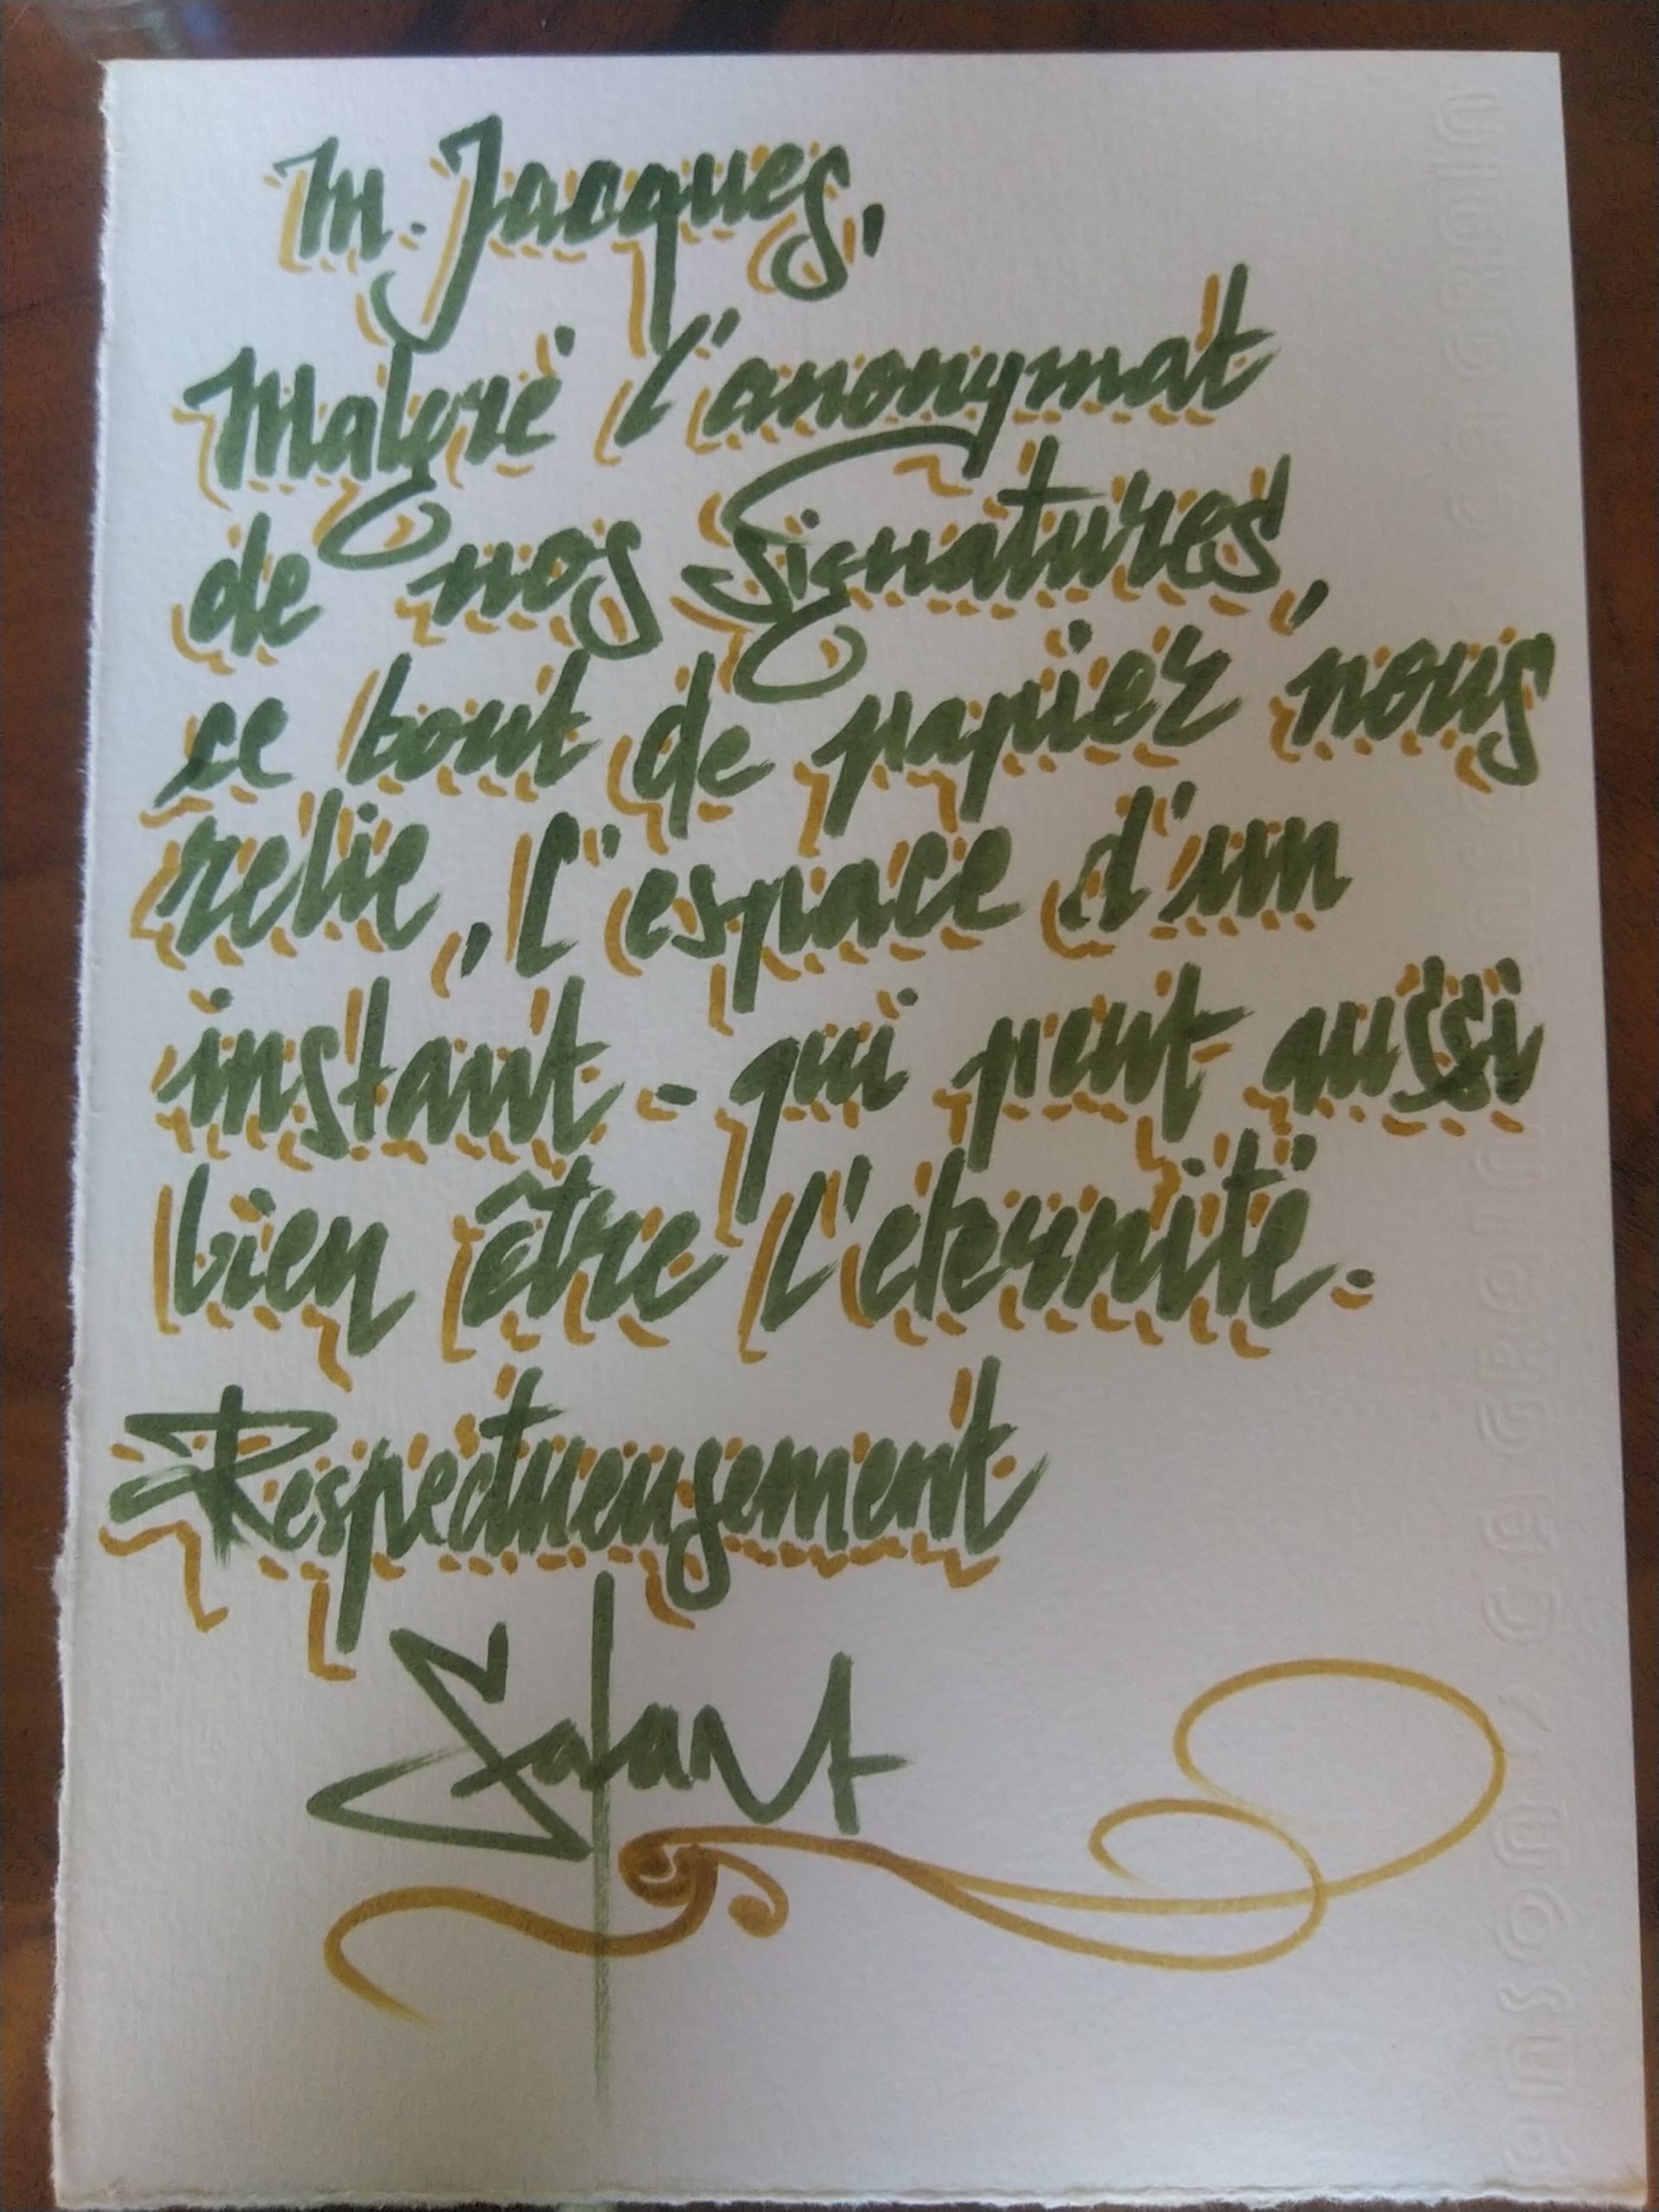 M. Jacques,
Malgré l'anonymat
de nos signatures,
ce bout de papier nous
relie, l'espace d'un
instant - qui peut aussi
bien être l'éternité.
Respectueusement